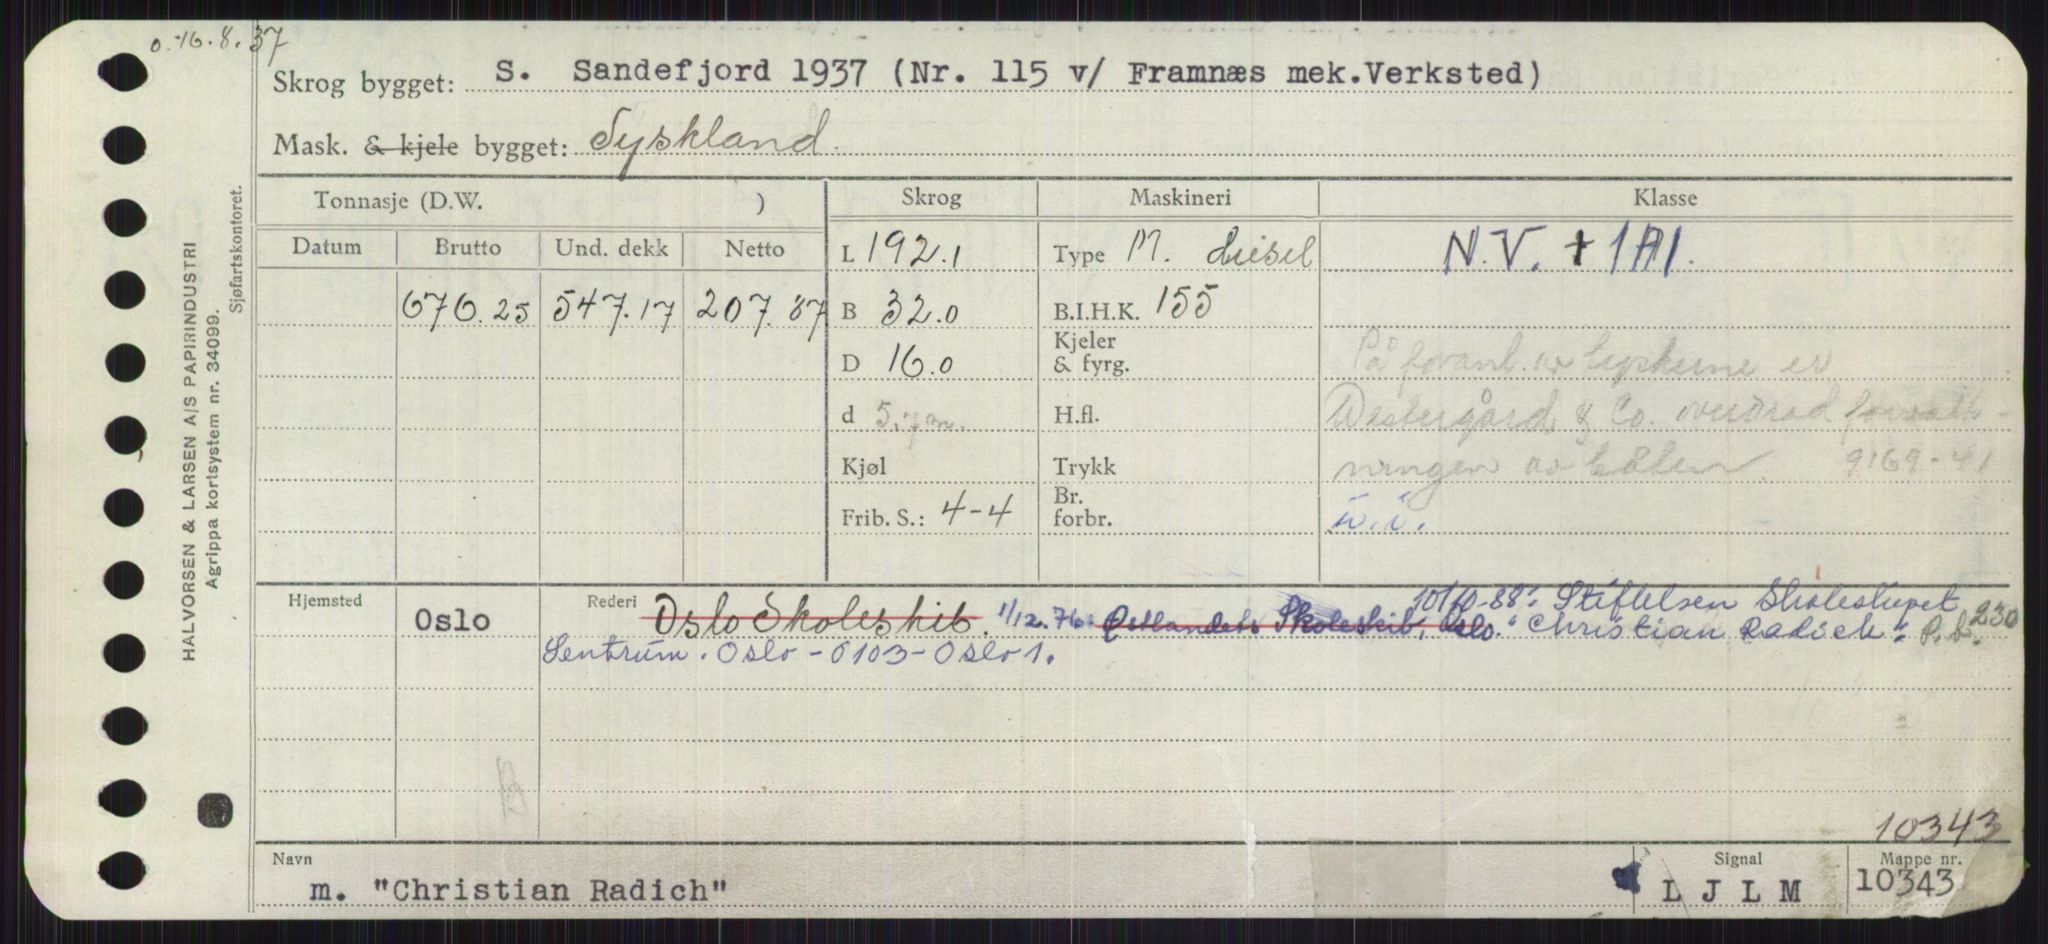 o. 16.8.37
Skrog bygget: S. Sandefjord 1937 (Nr. 115 v/ Framnæs mek.Verksted)
Mask. & kjele bygget: Tyskland.
Tonnasje (D.W. ) Skrog Maskineri Klasse
Datum Brutto Und. dekk Netto L 192.1 Type M. diesel N.V. + 1A1.
676.25 547.17 207.87 B 32.0 B.I.H.K. 155
D 16.0 Kjeler & fyrg. På foranl. av tyskerne er
d 5.7m. H.fl. Westergård & Co. overdrad forvalt-
Kjøl Trykk ningen av båten 9169-41
Frib. S.: 4-4 Br. forbr. w.i.
Hjemsted Oslo Rederi Oslo Skoleskib. 1/12.76: Østlandets Skoleskib, Oslo. 10/10-88: Stiftelsen Skoleskipet "Christian Radich": P.b. 230
Sentrum. Oslo - 0103 - Oslo 1.
10343
Navn Signal Mappe nr.
m. "Christian Radich" L J L M 10343
HALVORSEN & LARSEN A/S PAPIRINDUSTRI
Agrippa kortsystem nr. 34099.
Sjøfartskontoret.